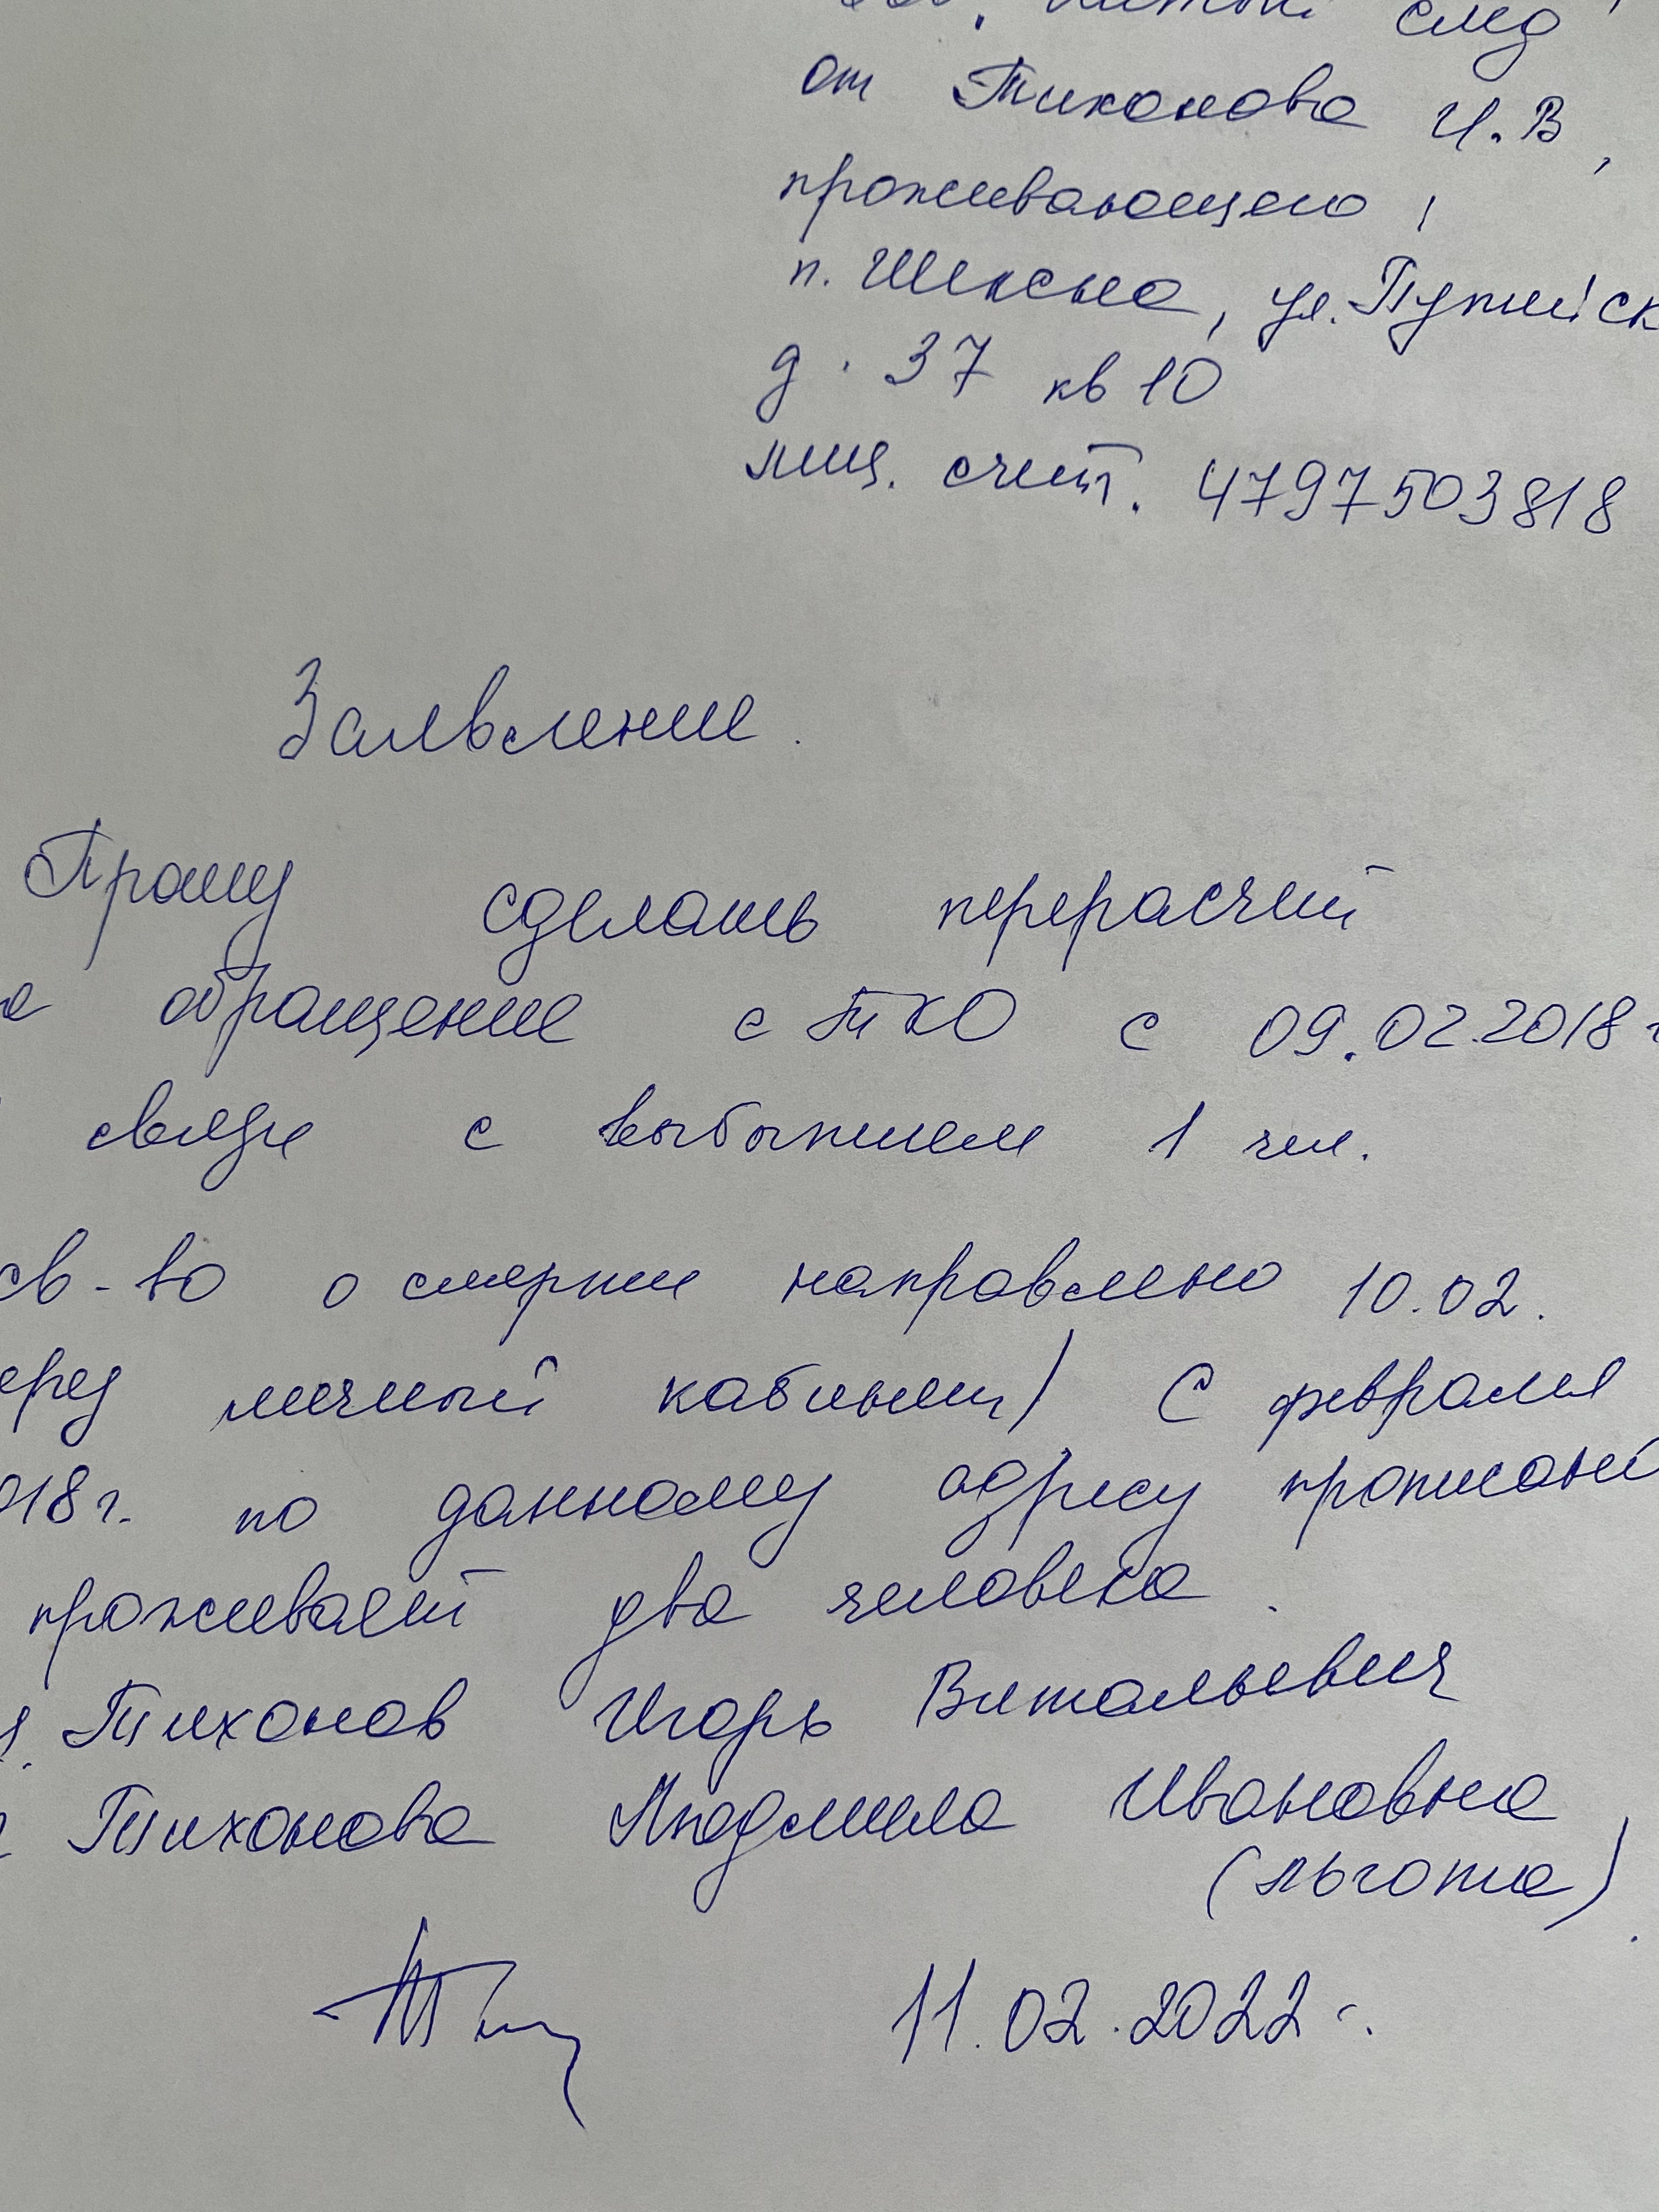 Чистый след
от Тихонова И.В,
проживающего,
п. Шексна, ул. Путейск
д. 37 кв 10
лиц. счет. 4797503818
Заявление.
Прошу сделать перерасчет
обращение с ТКО с 09.02.2018г
связи с выбытием 1 чел.
св-во о смерти направлено 10.02.
еред личный кабинет) С февраля
018г. по данному адресу прописан
проживает два человека.
Тихонов Игорь Витальевич
Тихонова Людмила Ивановна
(льгота).
11.02.2022г.